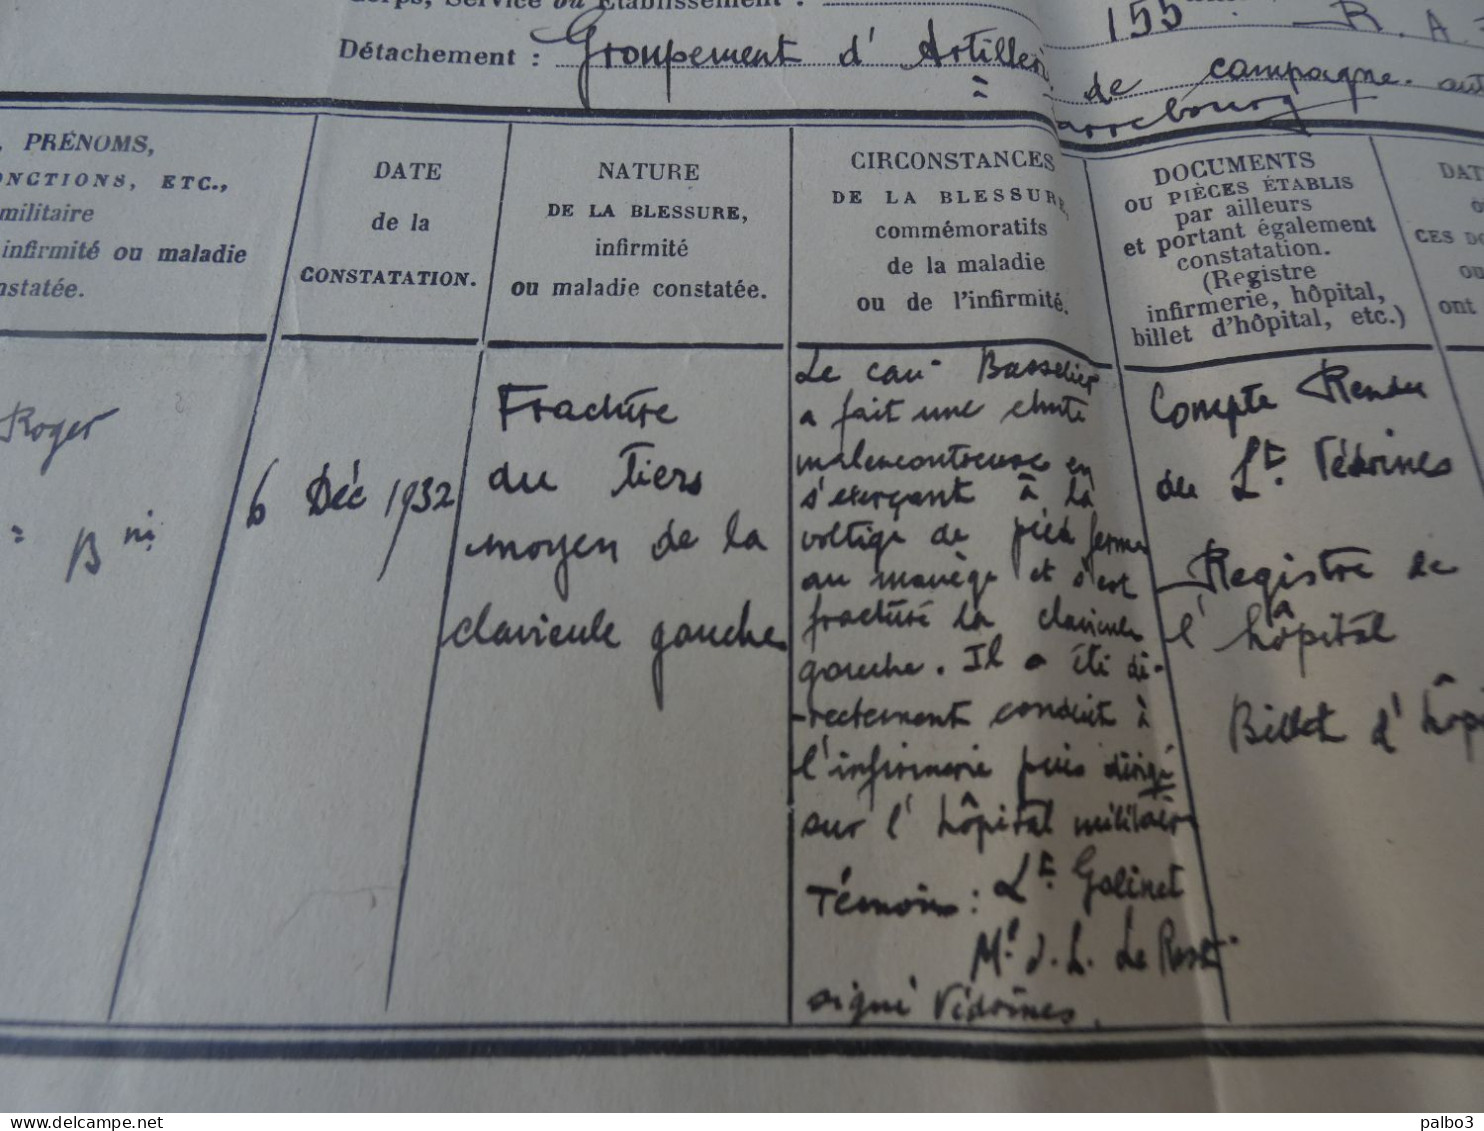 Corps, Service ou Établissement :
155 R. A.
Détachement : Groupement d' Artillerie de campagne
arrebourg
, PRÉNOMS,
ONCTIONS, ETC.,
militaire
infirmité ou maladie
nstatée.
DATE
de la
CONSTATATION.
NATURE
DE LA BLESSURE,
infirmité
ou maladie constatée.
CIRCONSTANCES
DE LA BLESSURE,
commémoratifs
de la maladie
ou de l'infirmité.
DOCUMENTS
OU PIÈCES ÉTABLIS
par ailleurs
et portant également
constatation.
(Registre
infirmerie, hôpital,
billet d'hôpital, etc.)
DAT
CES DO
ou
ont
Roger
= Bni
6 Déc 1932
Fracture
du tiers
moyen de la
clavicule gauche
Le can. Basselier
a fait une chute
malencontreuse en
s'exerçant à la
voltige de pied ferme
au manège et s'est
fracturé la clavicule
gauche. Il a été di-
-rectement conduit à
l'infirmerie puis dirigé
sur l' hôpital militaire
Témoins : Lt. Galinet
M. d. L. Le Rest
signé Védrines.
Compte Rendu
du Lt. Védrines
Registre de
l' hôpital
Billet d' hôp
palbo3